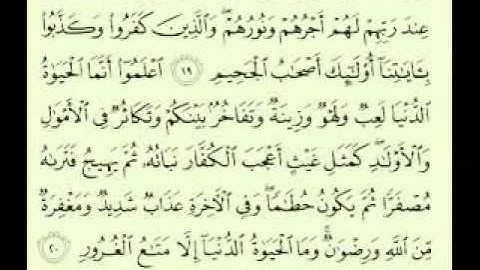 عِندَ رَبِّهِمْ لَهُمْ أَجْرُهُمْ وَنُورُهُمْ ۖ وَٱلَّذِينَ كَفَرُوا۟ وَكَذَّبُوا۟
بِـَٔايَٰتِنَآ أُو۟لَٰٓئِكَ أَصْحَٰبُ ٱلْجَحِيمِ ١٩ ٱعْلَمُوٓا۟ أَنَّمَا ٱلْحَيَوٰةُ
ٱلدُّنْيَا لَعِبٌ وَلَهْوٌ وَزِينَةٌ وَتَفَاخُرٌۢ بَيْنَكُمْ وَتَكَاثُرٌ فِى ٱلْأَمْوَٰلِ
وَٱلْأَوْلَٰدِ ۖ كَمَثَلِ غَيْثٍ أَعْجَبَ ٱلْكُفَّارَ نَبَاتُهُۥ ثُمَّ يَهِيجُ فَتَرَىٰهُ
مُصْفَرًّا ثُمَّ يَكُونُ حُطَٰمًا ۖ وَفِى ٱلْءَاخِرَةِ عَذَابٌ شَدِيدٌ وَمَغْفِرَةٌ
مِّنَ ٱللَّهِ وَرِضْوَٰنٌ ۚ وَمَا ٱلْحَيَوٰةُ ٱلدُّنْيَآ إِلَّا مَتَٰعُ ٱلْغُرُورِ ٢٠